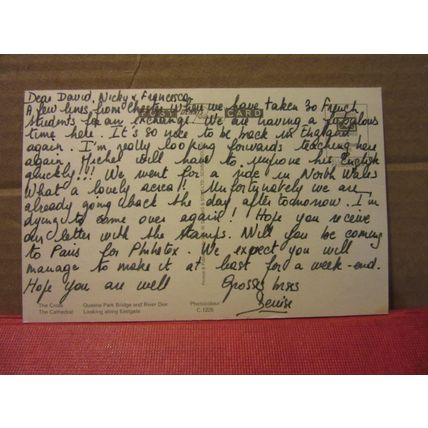 Dear David, Nicky & Francesca
A few lines from Chester where we have taken 30 French
students for an exchange. We are having a fabulous
POST CARD
time here. It's so nice to be back in England
again. I'm really looking forwards teaching here
again. Michel will have to improve his English
quickly!!! We went for a ride in North Wales
What a lovely aerea! Unfortunately we are
already going back the day after tomorrow. I'm
dying to come over again! Hope you receive
our letter with the stamps. Will you be coming
to Paris for Philatex. We expect you will
manage to make it at least for a week-end.
Hope you are well Grosses bises
Denise
The Cross Queens Park Bridge and River Dee
The Cathedral Looking along Eastgate
Photocolour
C.1226